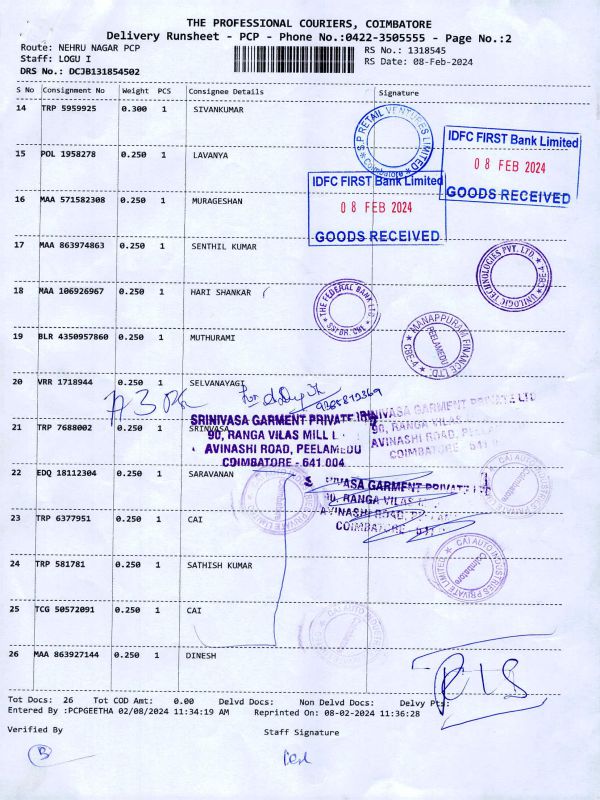 THE PROFESSIONAL COURIERS, COIMBATORE
Delivery Runsheet - PCP - Phone No.:0422-3505555 - Page No.:2
Route: NEHRU NAGAR PCP
Staff: LOGU I
DRS No.: DCJB131854502
RS No.: 1318545
RS Date: 08-Feb-2024
S No Consignment No Weight PCS Consignee Details Signature
14 TRP 5959925 0.300 1 SIVANKUMAR
S.P RETAIL VENTURES LIMITED
* Coimbatore *
IDFC FIRST Bank Limited
08 FEB 2024
GOODS RECEIVED
15 POL 1958278 0.250 1 LAVANYA
IDFC FIRST Bank Limited
08 FEB 2024
GOODS RECEIVED
16 MAA 571582308 0.250 1 MURAGESHAN
17 MAA 863974863 0.250 1 SENTHIL KUMAR
UNILOGIC TECHNOLOGIES PVT. LTD
* CBE-4 *
18 MAA 106926967 0.250 1 HARI SHANKAR
THE FEDERAL BANK LTD
19 BLR 4350957860 0.250 1 MUTHURAMI
MANAPPURAM FINANCE LTD
PEELAMEDU
CBE-4
20 VRR 1718944 0.250 1 SELVANAYAGI
21 TRP 7688002 0.250 1 SRINIVASA
SRINIVASA GARMENT PRIVATE
90, RANGA VILAS MILL
AVINASHI ROAD, PEELAMEDU
COIMBATORE - 641 004
INIVASA GARMENT PRIVATE LTD
90, RANGA VILAS
AVINASHI ROAD,
COIMBATORE
22 EDQ 18112304 0.250 1 SARAVANAN
VASA GARMENT PRIVATE LTD
90, RANGA VILAS
AVINASHI ROAD,
COIMBATORE
CAI AUTO INDUSTRIES PRIVATE LIMITED
Coimbatore
23 TRP 6377951 0.250 1 CAI
24 TRP 581781 0.250 1 SATHISH KUMAR
CAI AUTO INDUSTRIES PRIVATE LIMITED
Coimbatore
25 TCG 50572091 0.250 1 CAI
CAI AUTO
26 MAA 863927144 0.250 1 DINESH
Tot Docs: 26 Tot COD Amt: 0.00 Delvd Docs: Non Delvd Docs: Delvy Pt:
Entered By :PCPGEETHA 02/08/2024 11:34:19 AM Reprinted On: 08-02-2024 11:36:28
Verified By
Staff Signature
B